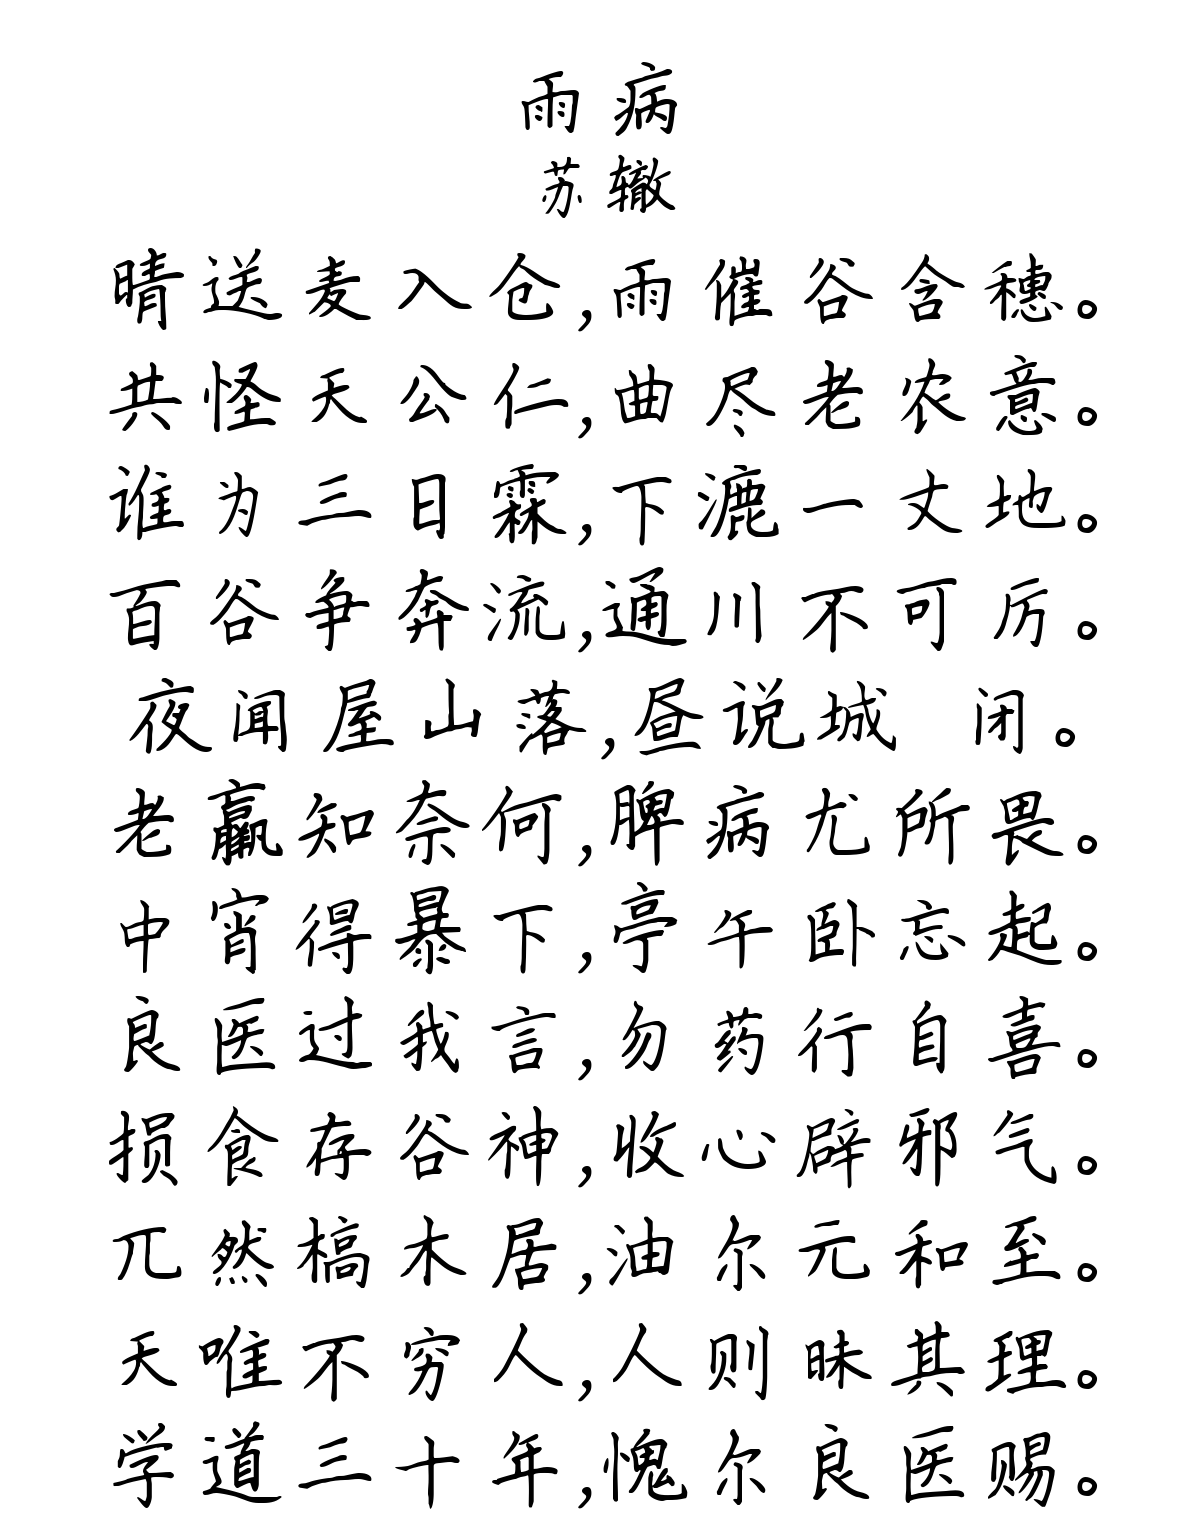 雨病
苏辙
晴送麦入仓,雨催谷含穗。
共怪天公仁,曲尽老农意。
谁为三日霖,下漉一丈地。
百谷争奔流,通川不可厉。
夜闻屋山落,昼说城 闭。
老赢知奈何,脾病尤所畏。
中宵得暴下,亭午卧忘起。
良医过我言,勿药行自喜。
损食存谷神,收心辟邪气。
兀然槁木居,油尔元和至。
天唯不穷人,人则昧其理。
学道三十年,愧尔良医赐。